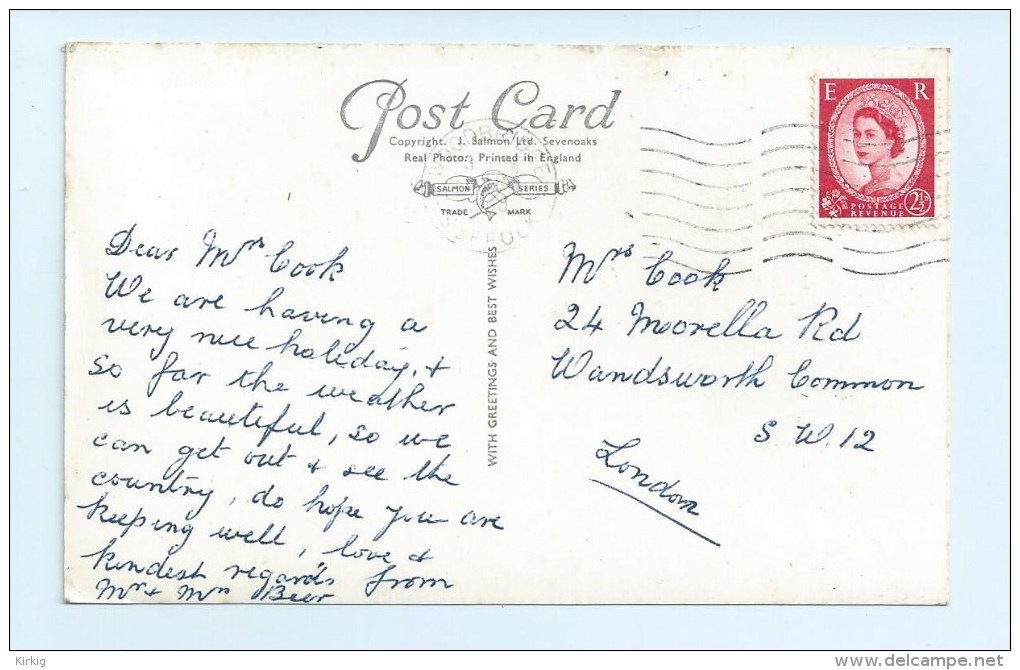 Post Card
Copyright. J. Salmon Ltd. Sevenoaks
Real Photo. Printed in England
SALMON SERIES
TRADE MARK
WOODBRIDGE
SUFFOLK
E R
POSTAGE
REVENUE
2½D
WITH GREETINGS AND BEST WISHES
Dear Mrs Cook
We are having a
very nice holiday, +
so far the weather
is beautiful, so we
can get out + see the
country, do hope you are
keeping well, love &
kindest regards from
Mr + Mrs Beer
Mrs Cook
24 Moorella Rd
Wandsworth Common
S.W.12
London
Kirkig
www.delcampe.net